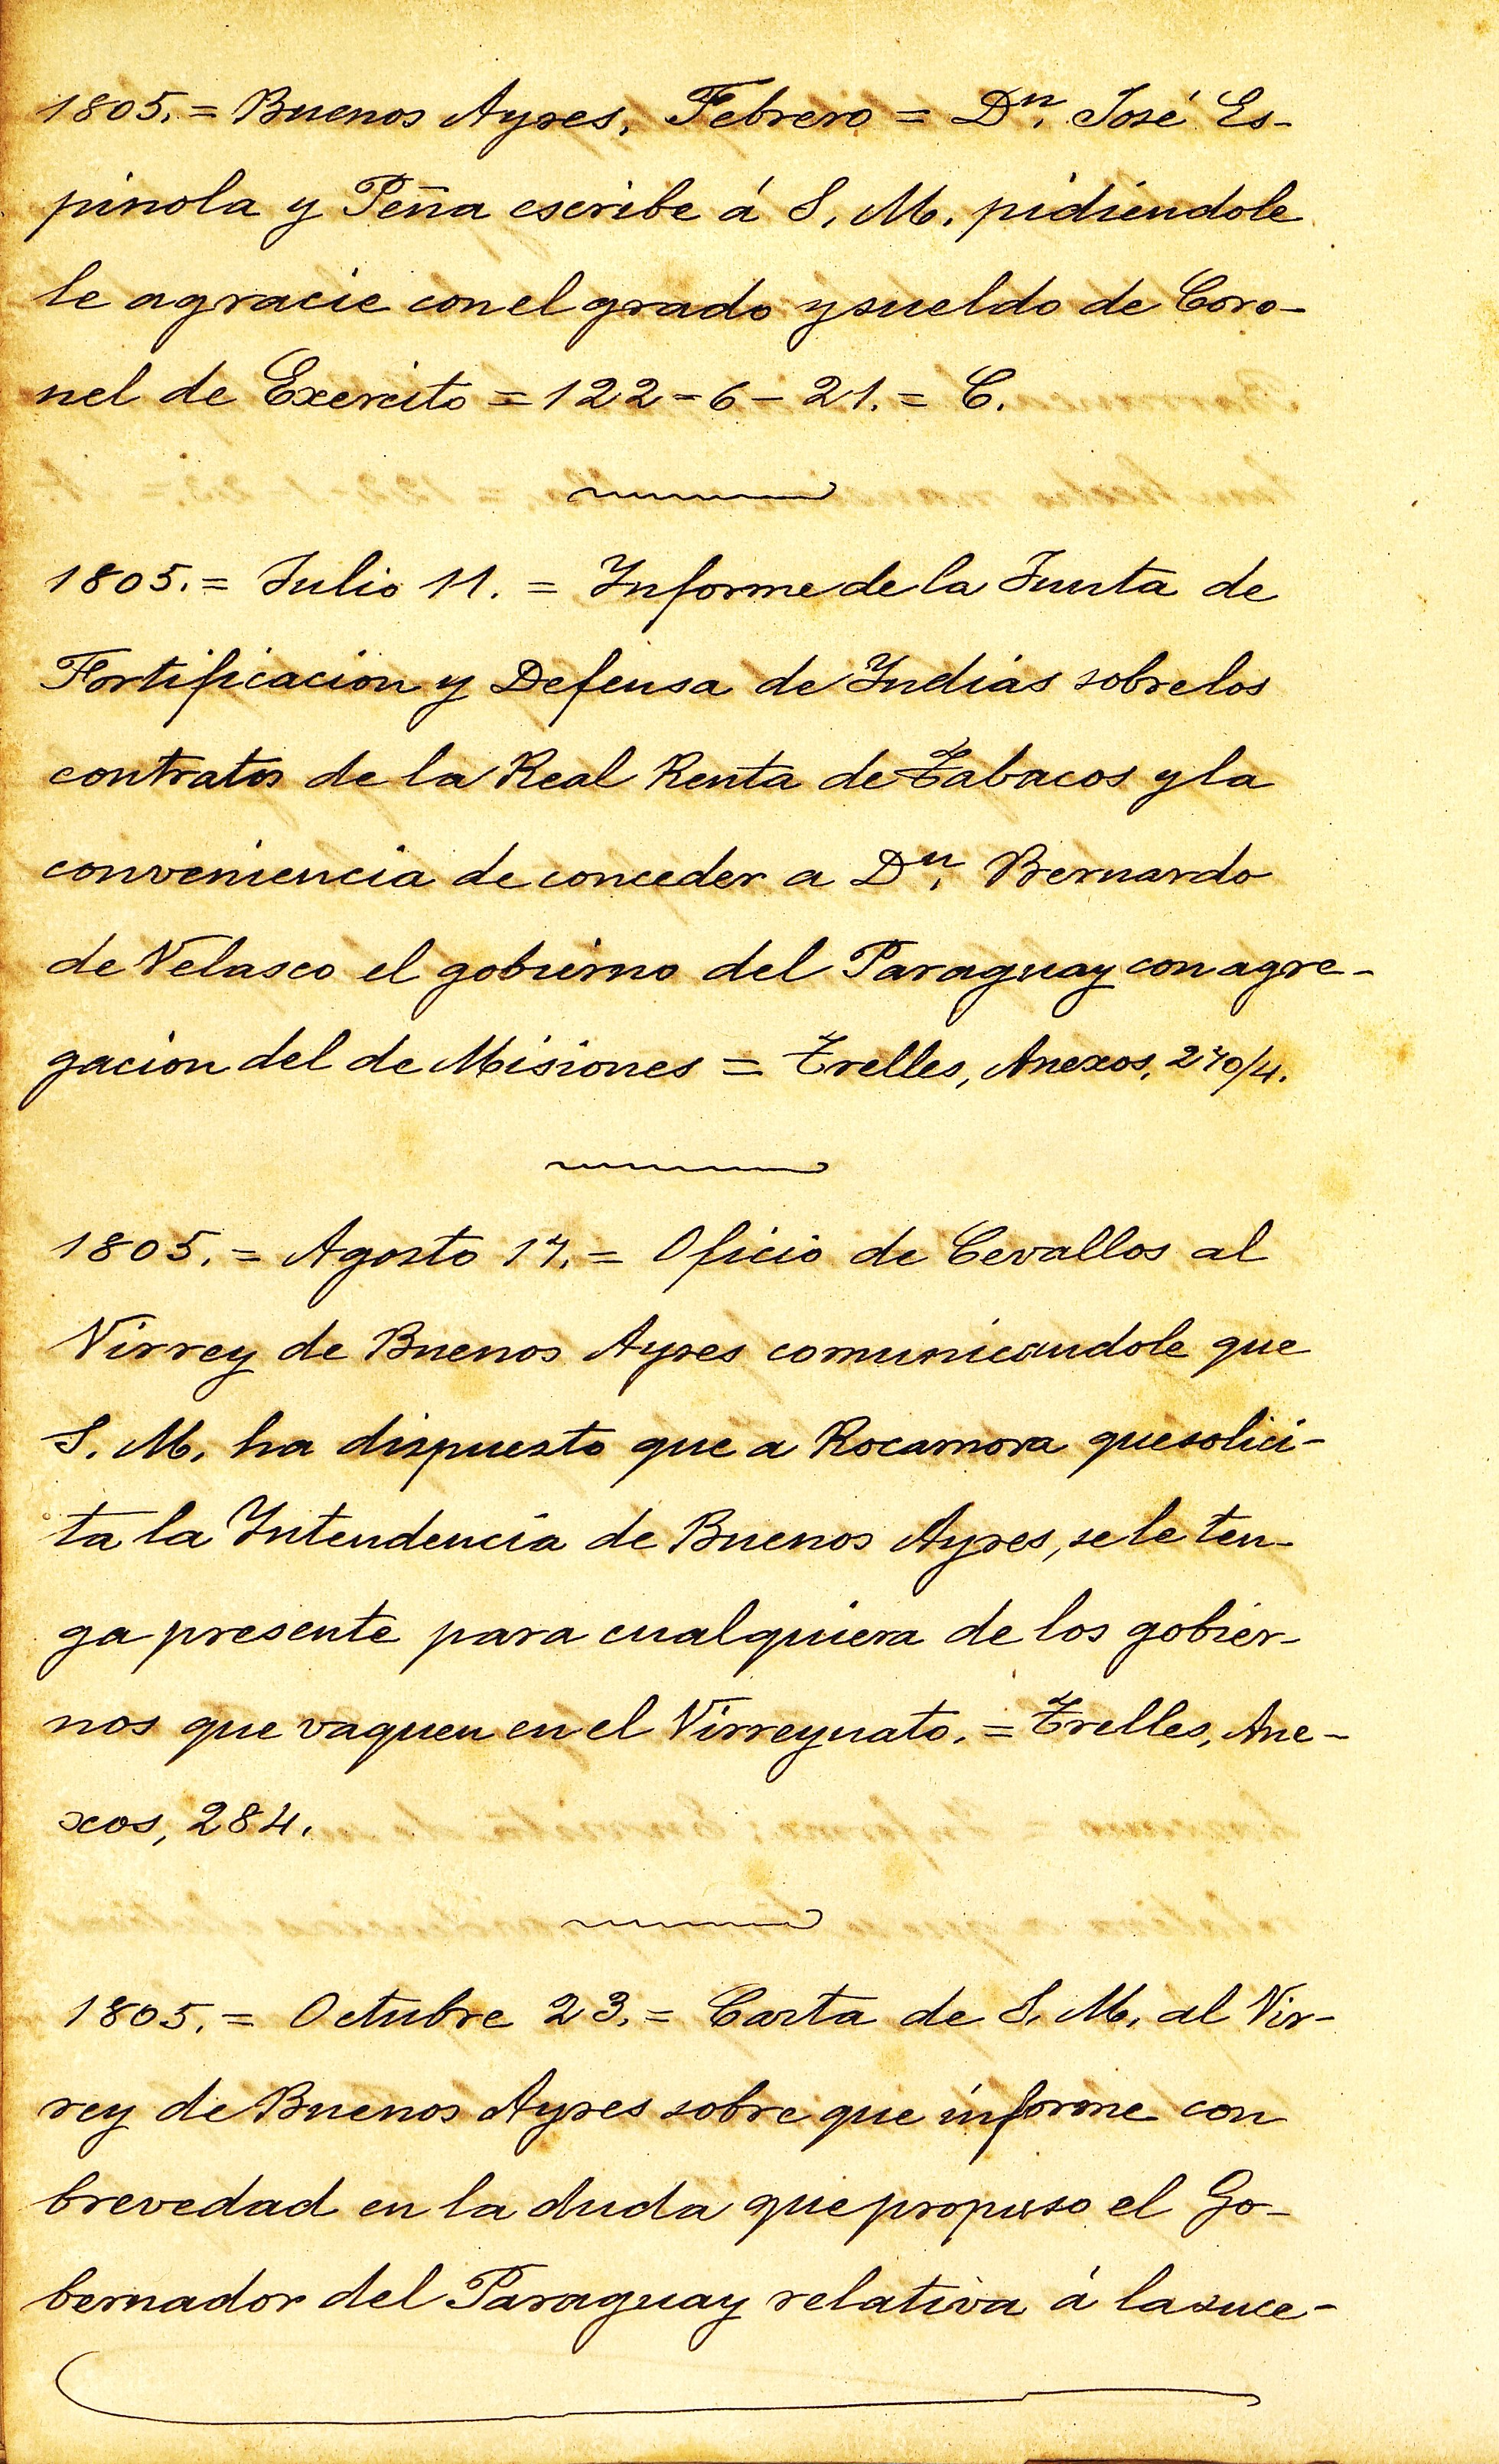 1805. = Buenos Ayres, Febrero = Dn. José Es-
pinola y Peña escribe á S. M. pidiéndole
le agracie con el grado y sueldo de Coro-
nel de Exercito = 122 - 6 - 21. = C.
1805. = Julio 11. = Informe de la Junta de
Fortificacion y Defensa de Indias sobre los
contratos de la Real Renta de Tabacos y la
conveniencia de conceder a Dn. Bernardo
de Velasco el gobierno del Paraguay con agre-
gacion del de Misiones = Trelles, Anexos, 270/4.
1805. = Agosto 17. = Oficio de Cevallos al
Virrey de Buenos Ayres comunicandole que
S. M. ha dispuesto que a Rocamora que solici-
ta la Intendencia de Buenos Ayres, se le ten-
ga presente para cualquiera de los gobier-
nos que vaquen en el Virreynato. = Trelles, Ane-
xos, 284.
1805. = Octubre 23. = Carta de S. M. al Vir-
rey de Buenos Ayres sobre que informe con
brevedad en la duda que propuso el Go-
bernador del Paraguay relativa á la suce-